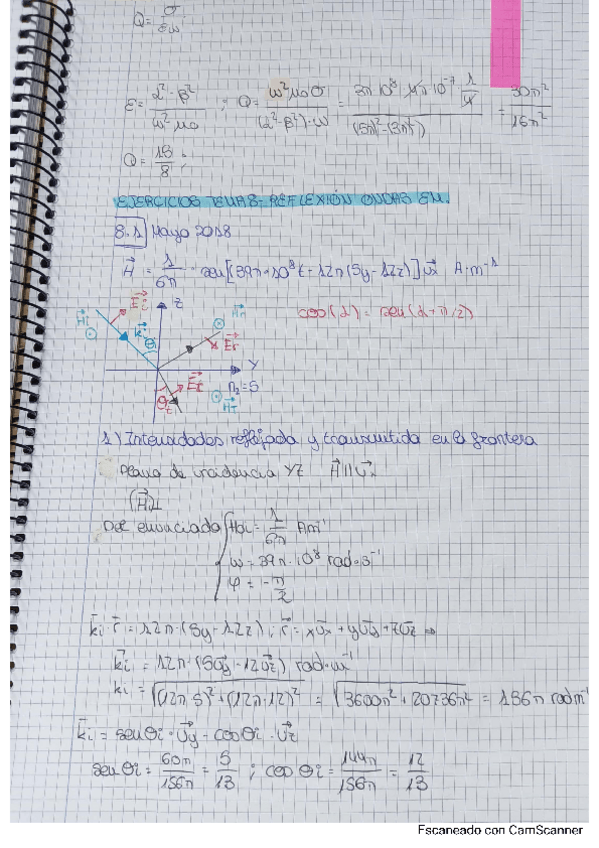 Q = σ/εω
ε = (α²-β²)/(ω²μo ; Q = ω²μoσ/((α²-β²)·ω) = 3π 10⁸ 4π 10⁻⁷ 1/4 / (5π)²-(3π)² = 30π²/16π²
Q = 18/8 ;
EJERCICIOS TEMA 8: REFLEXIÓN ONDAS EM.
8.1 Mayo 2018
H⃗ = 1/6π · sen[39π×10⁸t - 12π(5y-12z)] u⃗x A·m⁻¹
cos(α) = sen(α+π/2)
z
H⃗i E⃗i H⃗r
k⃗i θi E⃗r
Y
E⃗t n2=5
θt H⃗t
1) Intensidades reflejada y transmitida en la frontera
Plano de incidencia YZ H⃗ || u⃗x
(H⃗)⊥
Del enunciado { Hoi = 1/6π Am⁻¹
ω = 39π·10⁸ rad·s⁻¹
φ = -π/2
k⃗i·r⃗ = 12π·(5y-12z); r⃗ = xu⃗x + yu⃗y + zu⃗z ⇒
k⃗i = 12π·(5u⃗y-12u⃗z) rad·m⁻¹
ki = √((12π·5)²+(12π·12)²) = √(3600π²+20736π²) = 156π rad m⁻¹
k⃗i = senθi·u⃗y - cosθi·u⃗z
senθi = 60π/156π = 5/13 ; cosθi = 144π/156π = 12/13
Escaneado con CamScanner